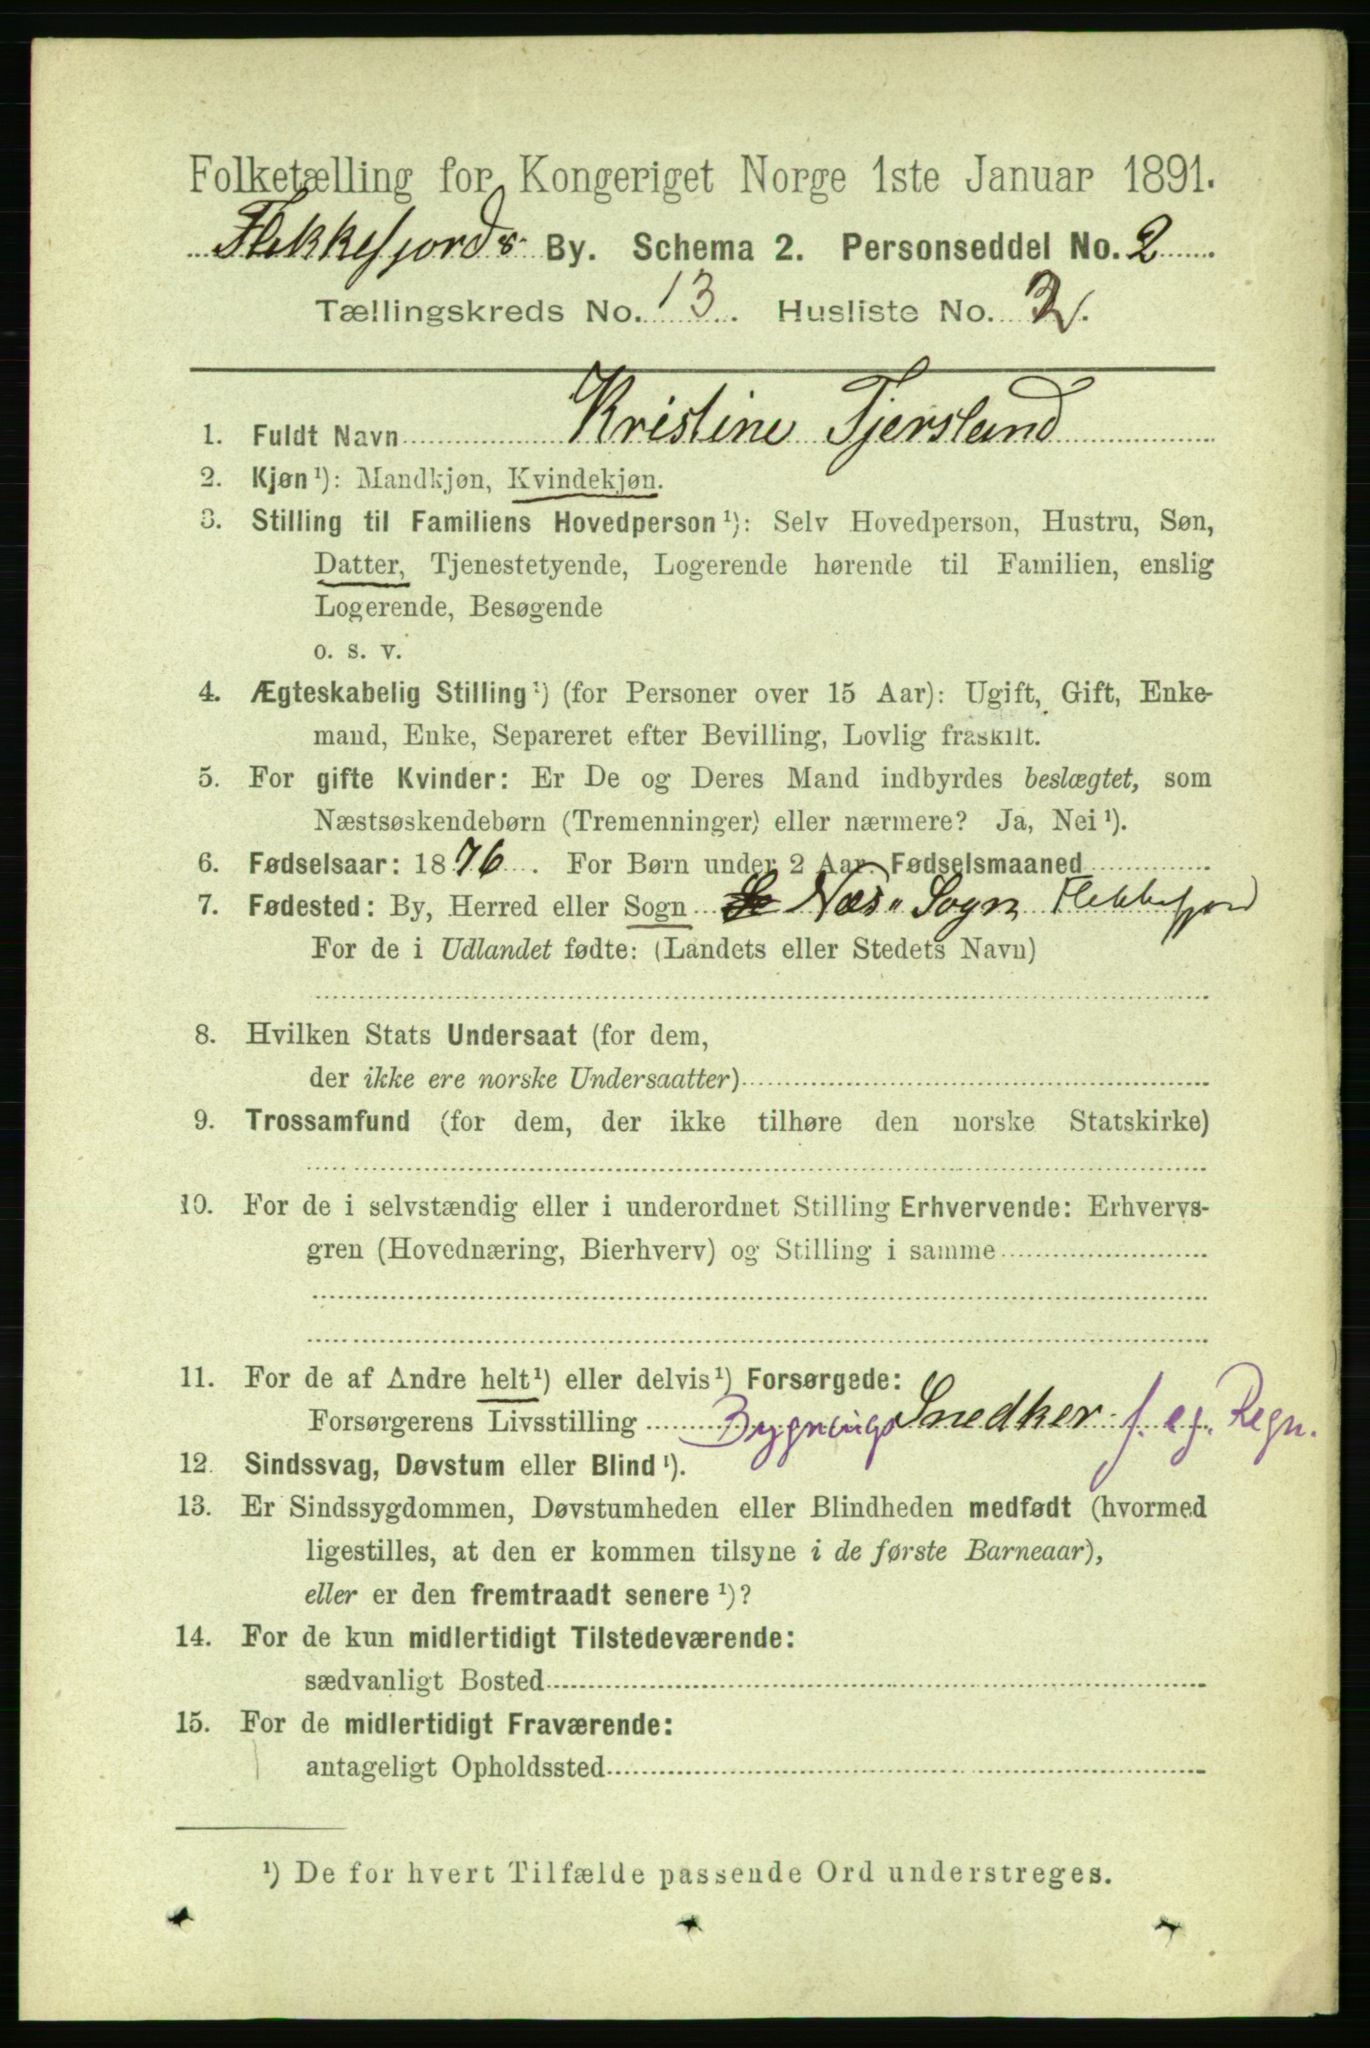 Folketælling for Kongeriget Norge 1ste Januar 1891.
Flekkefjords By. Schema 2. Personseddel No. 2
Tællingskreds No. 13. Husliste No. 2.
1. Fuldt Navn Kristine Tjersland
2. Kjøn¹): Mandkjøn, Kvindekjøn.
3. Stilling til Familiens Hovedperson¹): Selv Hovedperson, Hustru, Søn,
Datter, Tjenestetyende, Logerende hørende til Familien, enslig
Logerende, Besøgende
o. s. v.
4. Ægteskabelig Stilling¹) (for Personer over 15 Aar): Ugift, Gift, Enke-
mand, Enke, Separeret efter Bevilling, Lovlig fraskilt.
5. For gifte Kvinder: Er De og Deres Mand indbyrdes beslægtet, som
Næstsøskendebørn (Tremenninger) eller nærmere? Ja, Nei¹).
6. Fødselsaar: 1876. For Børn under 2 Aar: Fødselsmaaned
7. Fødested: By, Herred eller Sogn Næs" Sogn Flekkefjord
For de i Udlandet fødte: (Landets eller Stedets Navn)
8. Hvilken Stats Undersaat (for dem,
der ikke ere norske Undersaatter)
9. Trossamfund (for dem, der ikke tilhøre den norske Statskirke)
10. For de i selvstændig eller i underordnet Stilling Erhvervende: Erhvervs-
gren (Hovednæring, Bierhverv) og Stilling i samme
11. For de af Andre helt¹) eller delvis¹) Forsørgede:
Forsørgerens Livsstilling Bygnings Snedker f. eg. Regn.
12. Sindssvag, Døvstum eller Blind¹).
13. Er Sindssygdommen, Døvstumheden eller Blindheden medfødt (hvormed
ligestilles, at den er kommen tilsyne i de første Barneaar),
eller er den fremtraadt senere¹)?
14. For de kun midlertidigt Tilstedeværende:
sædvanligt Bosted
15. For de midlertidigt Fraværende:
antageligt Opholdssted
¹) De for hvert Tilfælde passende Ord understreges.